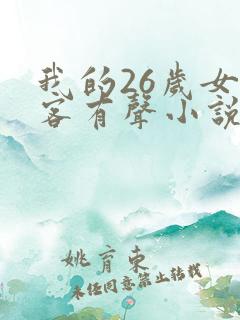 我的26歲女
客有聲小説
姚育东
未经同意禁止转载